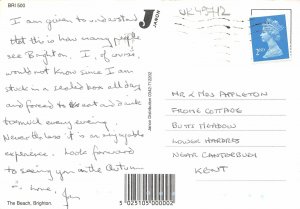 BRI 503
I am given to understand
that this is how many people
see Brighton. I, of course
would not know since I am
stuck in a sealed box all day
and forced to eat and dance
to music every evening.
Nevertheless it is an enjoyable
experience. Look forward
to seeing you in the Autumn
love. Jim
The Beach, Brighton.
J
JARON
Jaron Distribution 0342-713202
5 025105 000002
2ND
MR & MRS APPLETON
FROME COTTAGE
BUTTS MEADOW
LOWER HARDRES
NEAR CANTERBURY
KENT